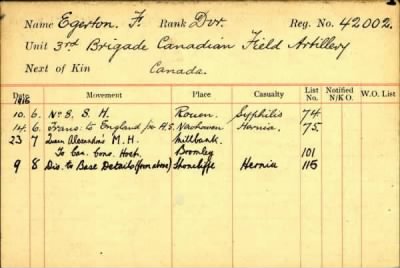 Name Egerton. F. Rank Dvr. Reg. No. 42002.
Unit 3rd Brigade Canadian Field Artillery
Next of Kin Canada.
Date Movement Place Casualty List No. Notified N/K O. W.O. List
1916
10. 6. No 8. S. H. Rouen. Syphilis 74
14. 6. Trans: to England for H.S. Hernia. 75.
23 7 Queen Alexandra's M. H. Millbank.
To Can. Conv. Hosp. Bromley 101
9 8 Dis. to Base Details (from above) Shorncliffe Hernia 116